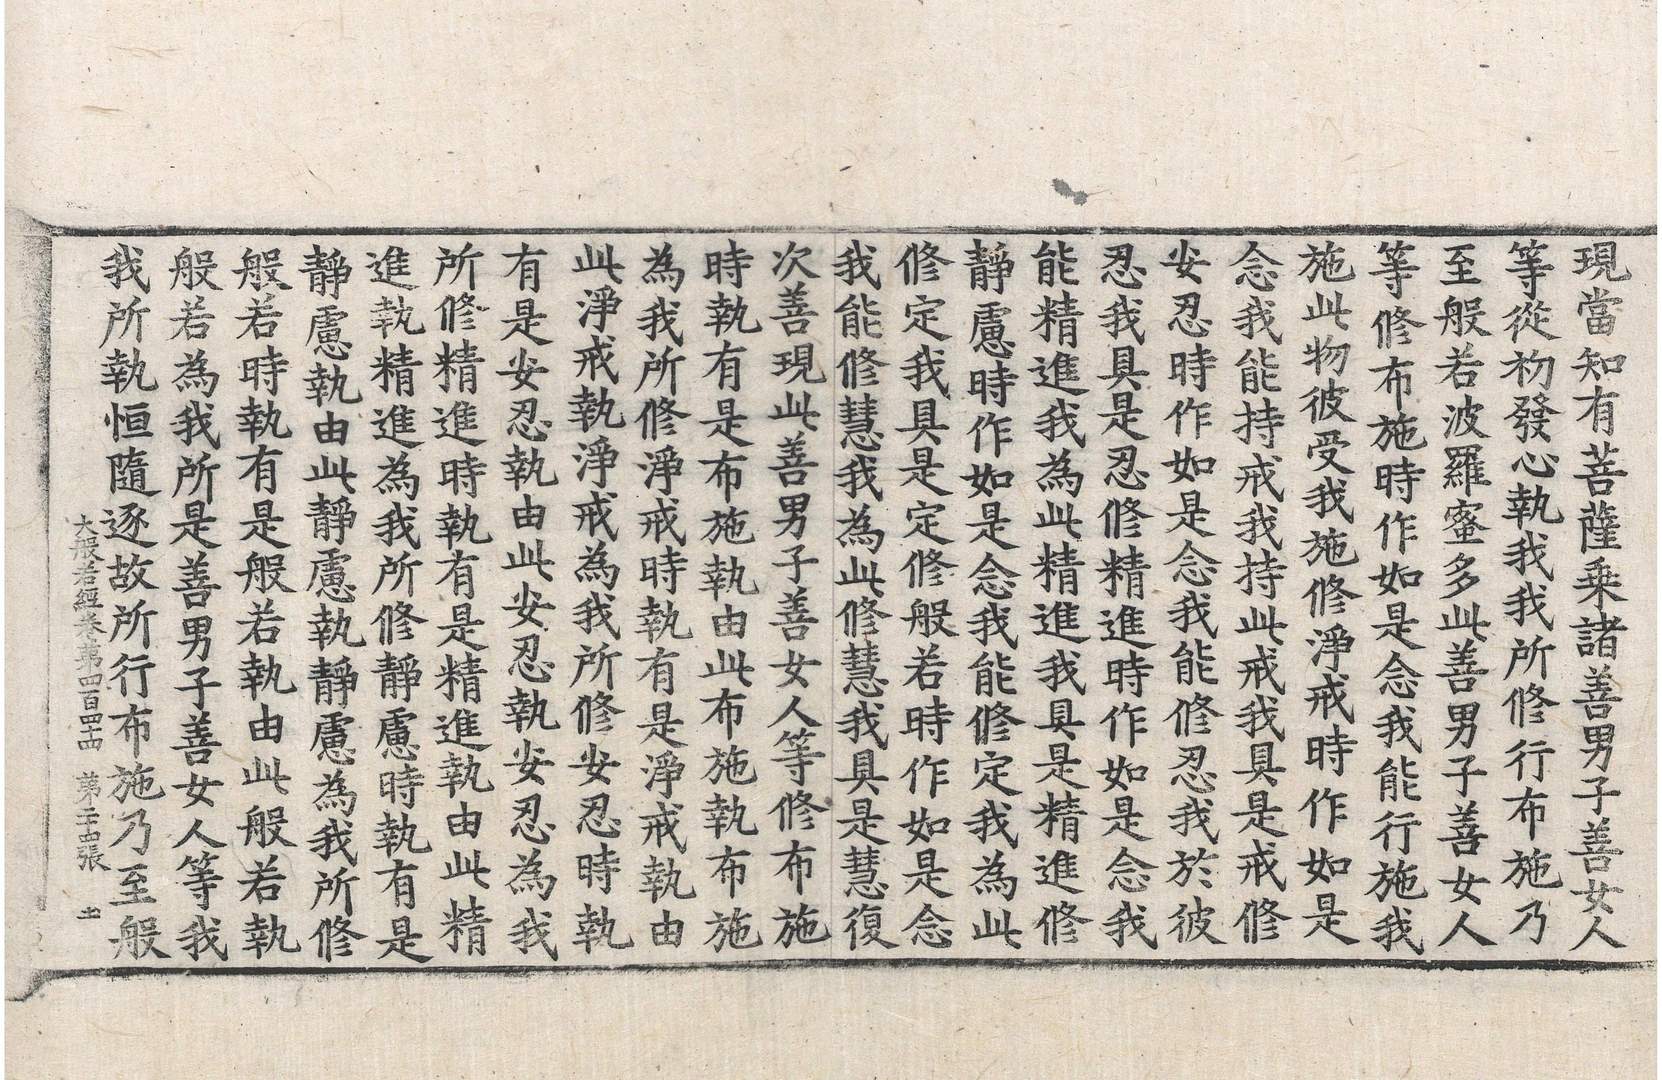 現當知有菩薩乘諸善男子善女人
等從初發心執我我所修行布施乃
至般若波羅蜜多此善男子善女人
等修布施時作如是念我能行施我
施此物彼受我施修淨戒時作如是
念我能持戒我持此戒我具是戒修
安忍時作如是念我能修忍我於彼
忍我具是忍修精進時作如是念我
能精進我為此精進我具是精進修
靜慮時作如是念我能修定我為此
修定我具是定修般若時作如是念
我能修慧我為此修慧我具是慧復
次善現此善男子善女人等修布施
時執有是布施執由此布施執布施
為我所修淨戒時執有是淨戒執由
此淨戒執淨戒為我所修安忍時執
有是安忍執由此安忍執安忍為我
所修精進時執有是精進執由此精
進執精進為我所修靜慮時執有是
靜慮執由此靜慮執靜慮為我所修
般若時執有是般若執由此般若執
般若為我所是善男子善女人等我
我所執恒隨逐故所行布施乃至般
大般若經卷第四百四十四 第二十四張